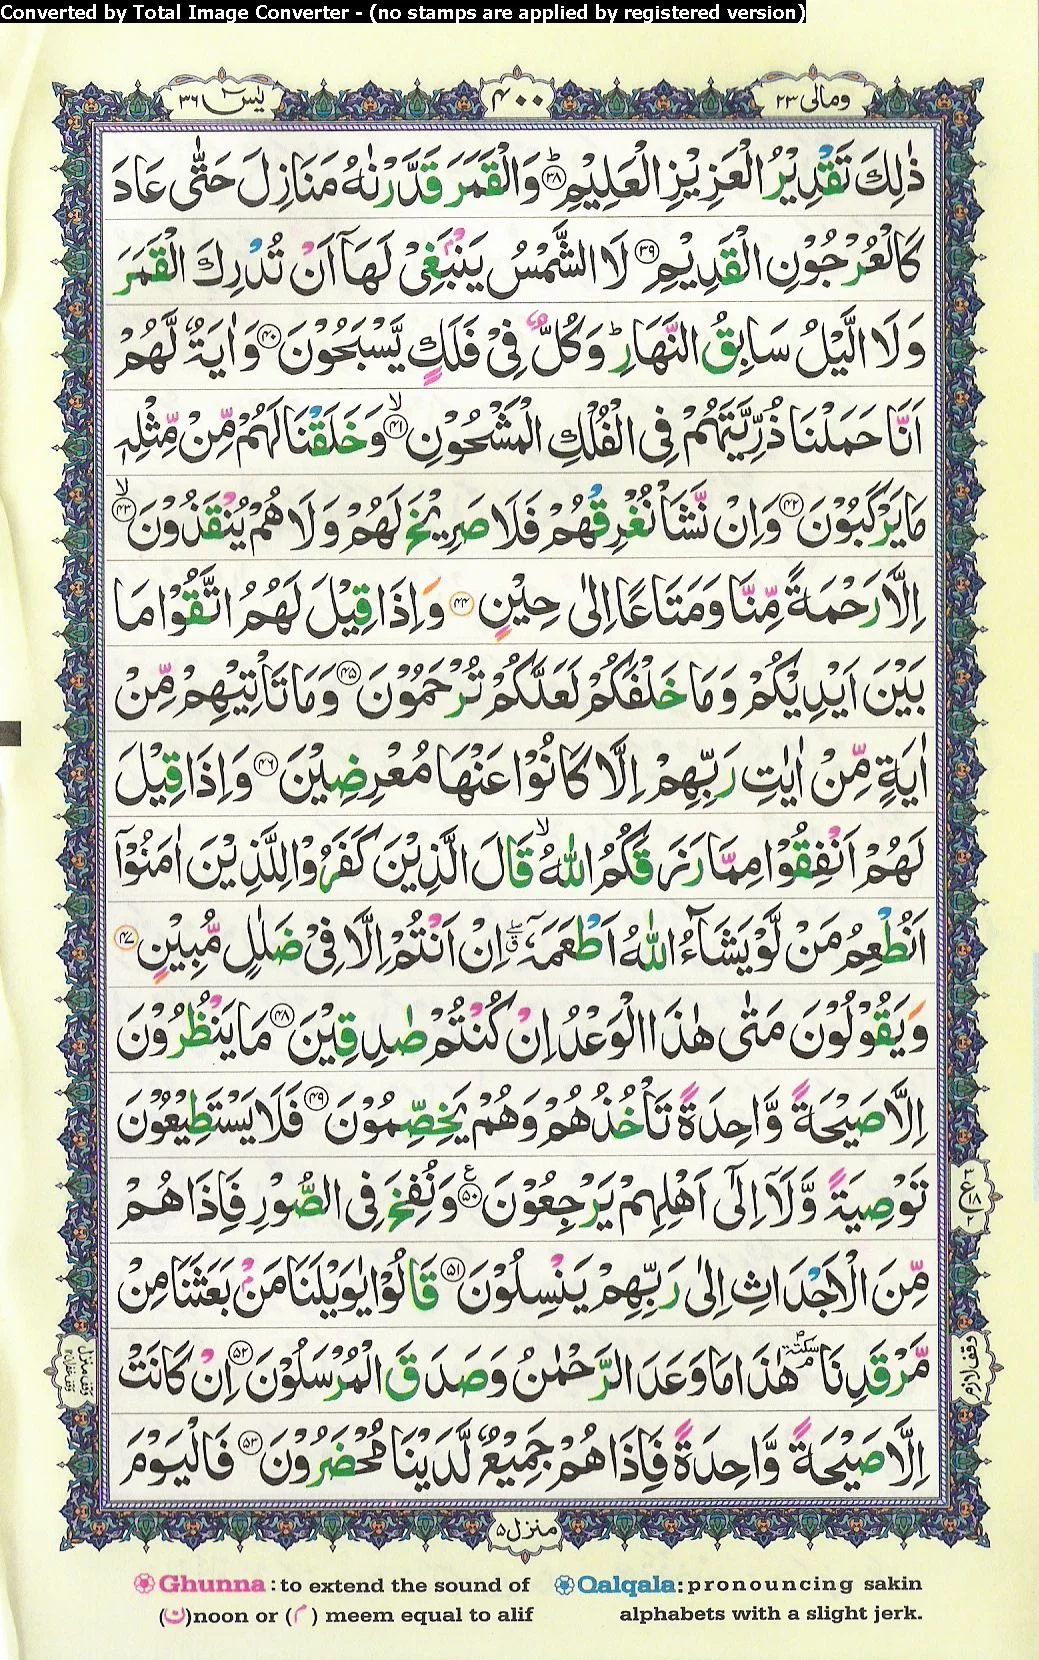 Converted by Total Image Converter - (no stamps are applied by registered version)
يٰسٓ ٣٦
٤٠٠
ومالی ٢٣
ذٰلِكَ تَقْدِيْرُ الْعَزِيْزِ الْعَلِيْمِؕ ٣٨ وَالْقَمَرَ قَدَّرْنٰهُ مَنَازِلَ حَتّٰى عَادَ
كَالْعُرْجُوْنِ الْقَدِيْمِ ٣٩ لَا الشَّمْسُ يَنْۢبَغِىْ لَهَاۤ اَنْ تُدْرِكَ الْقَمَرَ
وَلَا الَّيْلُ سَابِقُ النَّهَارِؕ وَكُلٌّ فِىْ فَلَكٍ يَّسْبَحُوْنَ ٤٠ وَاٰيَةٌ لَّهُمْ
اَنَّا حَمَلْنَا ذُرِّيَّتَهُمْ فِى الْفُلْكِ الْمَشْحُوْنِۙ ٤١ وَخَلَقْنَا لَهُمْ مِّنْ مِّثْلِهٖ
مَا يَرْكَبُوْنَ ٤٢ وَاِنْ نَّشَاْ نُغْرِقْهُمْ فَلَا صَرِيْخَ لَهُمْ وَلَا هُمْ يُنْقَذُوْنَۙ ٤٣
اِلَّا رَحْمَةً مِّنَّا وَمَتَاعًا اِلٰى حِيْنٍ ٤٤ وَاِذَا قِيْلَ لَهُمُ اتَّقُوْا مَا
بَيْنَ اَيْدِيْكُمْ وَمَا خَلْفَكُمْ لَعَلَّكُمْ تُرْحَمُوْنَ ٤٥ وَمَا تَاْتِيْهِمْ مِّنْ
اٰيَةٍ مِّنْ اٰيٰتِ رَبِّهِمْ اِلَّا كَانُوْا عَنْهَا مُعْرِضِيْنَ ٤٦ وَاِذَا قِيْلَ
لَهُمْ اَنْفِقُوْا مِمَّا رَزَقَكُمُ اللّٰهُۙ قَالَ الَّذِيْنَ كَفَرُوْا لِلَّذِيْنَ اٰمَنُوْۤا
اَنُطْعِمُ مَنْ لَّوْ يَشَآءُ اللّٰهُ اَطْعَمَهٗۤ ۖۗ اِنْ اَنْتُمْ اِلَّا فِىْ ضَلٰلٍ مُّبِيْنٍ ٤٧
وَيَقُوْلُوْنَ مَتٰى هٰذَا الْوَعْدُ اِنْ كُنْتُمْ صٰدِقِيْنَ ٤٨ مَا يَنْظُرُوْنَ
اِلَّا صَيْحَةً وَّاحِدَةً تَاْخُذُهُمْ وَهُمْ يَخِصِّمُوْنَ ٤٩ فَلَا يَسْتَطِيْعُوْنَ
تَوْصِيَةً وَّلَاۤ اِلٰٓى اَهْلِهِمْ يَرْجِعُوْنَ ٥٠ ع وَنُفِخَ فِى الصُّوْرِ فَاِذَا هُمْ
٢ ع ١٨ ٢
مِّنَ الْاَجْدَاثِ اِلٰى رَبِّهِمْ يَنْسِلُوْنَ ٥١ قَالُوْا يٰوَيْلَنَا مَنْۢ بَعَثَنَا مِنْ
مَّرْقَدِنَا ۘؐ سكتة هٰذَا مَا وَعَدَ الرَّحْمٰنُ وَصَدَقَ الْمُرْسَلُوْنَ ٥٢ اِنْ كَانَتْ
وقف لازم
اِلَّا صَيْحَةً وَّاحِدَةً فَاِذَا هُمْ جَمِيْعٌ لَّدَيْنَا مُحْضَرُوْنَ ٥٣ فَالْيَوْمَ
منزل ٥
Ghunna : to extend the sound of (ن)noon or (م) meem equal to alif
Qalqala: pronouncing sakin alphabets with a slight jerk.